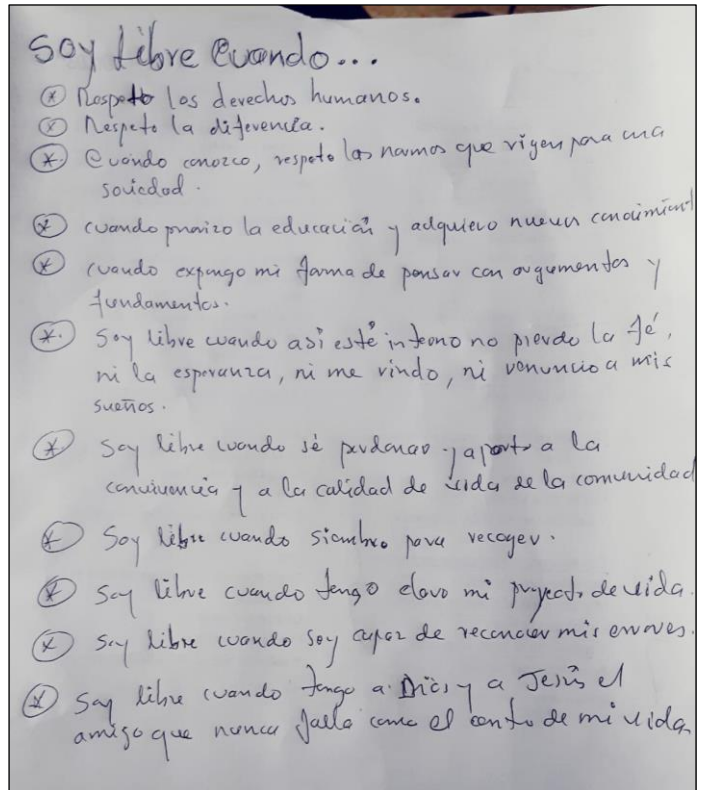 Soy libre Cuando...
* Respeto los derechos humanos.
* Respeto la diferencia.
* Cuando conozco, respeto las normas que rigen para una
sociedad.
* cuando priorizo la educación y adquiero nuevos conocimient
* cuando expongo mi forma de pensar con argumentos y
fundamentos.
* Soy libre cuando asi esté interno no pierdo la fé,
ni la esperanza, ni me rindo, ni renuncio a mis
sueños.
* Soy libre cuando sé perdonar y aporto a la
convivencia y a la calidad de vida de la comunidad
* Soy libre cuando siembro para recoger.
* Soy libre cuando tengo claro mi proyecto de vida.
* Soy libre cuando soy capaz de reconocer mis errores.
* Soy libre cuando tengo a Dios y a Jesús el
amigo que nunca falla como el centro de mi vida.